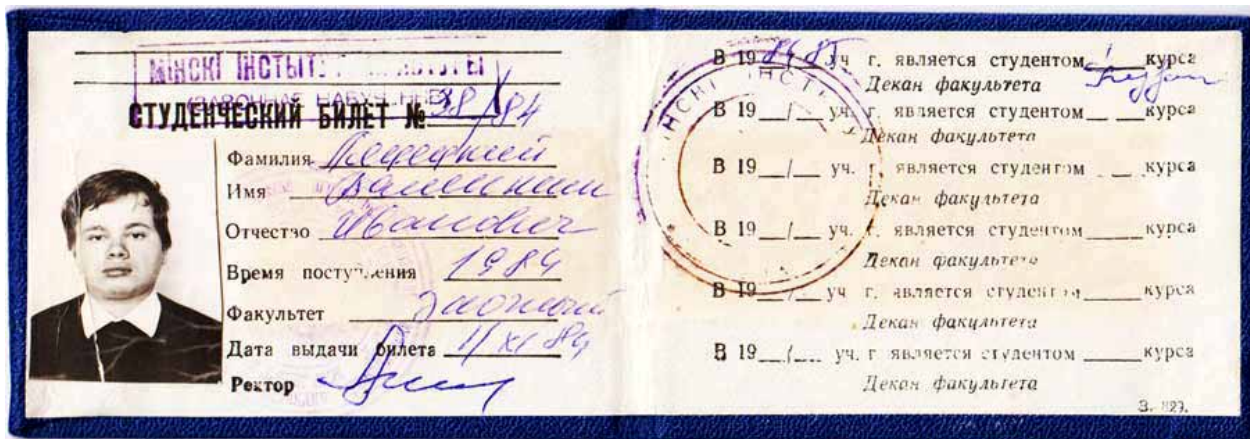 МІНСКІ ІНСТЫТ КУЛЬТУРЫ
СТУДЕНЧЕСКИЙ БИЛЕТ № 38/84
Фамилия
Имя Валентин
Отчество Иванович
Время поступления 1984
Факультет Заочный
Дата выдачи билета 11/XI 84
Ректор
В 1984/85 уч г. является студентом 1 курса
Декан факультета
В 19__/__ уч. г. является студентом __ __ курса
Декан факультета
В 19__/__ уч. г. является студентом __ __ курса
Декан факультета
В 19__/__ уч. г. является студентом ____ курса
Декан факультета
В 19__/__ уч г. является студентом ____ курса
Декан факультета
В 19__/__ уч. г является студентом ____ курса
Декан факультета
МІНСКІ ІНСТ
З. 827.